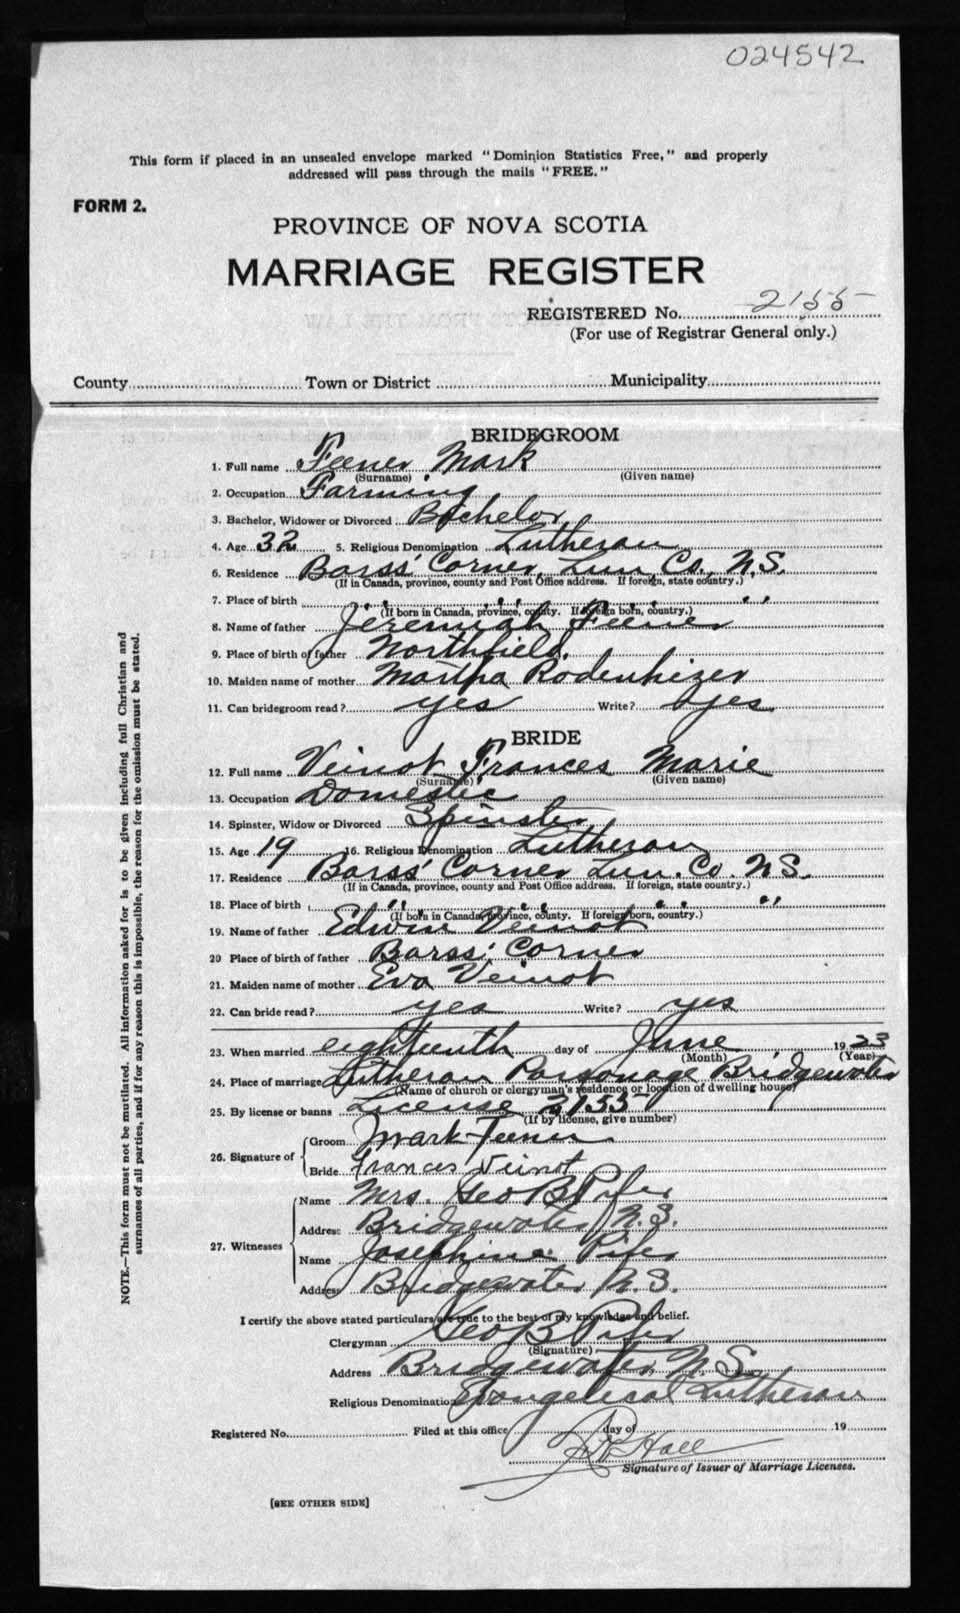 024542
This form if placed in an unsealed envelope marked "Dominion Statistics Free," and properly
addressed will pass through the mails "FREE."
FORM 2.
PROVINCE OF NOVA SCOTIA
MARRIAGE REGISTER
REGISTERED No. 2155
(For use of Registrar General only.)
County Town or District Municipality
BRIDEGROOM
1. Full name Feener Mark
(Surname) (Given name)
2. Occupation Farming
3. Bachelor, Widower or Divorced Bachelor
4. Age 32 5. Religious Denomination Lutheran
6. Residence Barss' Corner, Lun. Co., N.S.
(If in Canada, province, county and Post Office address. If foreign, state country.)
7. Place of birth " " " "
(If born in Canada, province, county. If foreign born, country.)
8. Name of father Jeremiah Feener
9. Place of birth of father Northfield
10. Maiden name of mother Martha Rodenhizer
11. Can bridegroom read? yes Write? yes
BRIDE
12. Full name Veinot Frances Marie
(Surname) (Given name)
13. Occupation Domestic
14. Spinster, Widow or Divorced Spinster
15. Age 19 16. Religious Denomination Lutheran
17. Residence Barss' Corner Lun. Co. N.S.
(If in Canada, province, county and Post Office address. If foreign, state country.)
18. Place of birth " " " "
(If born in Canada, province, county. If foreign born, country.)
19. Name of father Edwin Veinot
20 Place of birth of father Barss' Corner
21. Maiden name of mother Eva Veinot
22. Can bride read? yes Write? yes
23. When married eighteenth day of June 1923
(Month) (Year)
24. Place of marriage Lutheran Parsonage Bridgewater
(Name of church or clergyman's residence or location of dwelling house)
25. By license or banns License 2155
(If by license, give number)
26. Signature of Groom Mark Feener
Bride Frances Veinot
27. Witnesses Name Mrs. Geo B Pifer
Address Bridgewater, N.S.
Name Josephine Pifer
Address Bridgewater N.S.
I certify the above stated particulars are true to the best of my knowledge and belief.
Clergyman Geo B Pifer
(Signature)
Address Bridgewater, N.S.
Religious Denomination Evangelical Lutheran
Registered No. Filed at this office day of 19
Hall
Signature of Issuer of Marriage Licenses.
[SEE OTHER SIDE]
NOTE.—This form must not be mutilated. All information asked for is to be given including full Christian and
surnames of all parties, and if for any reason this is impossible, the reason for the omission must be stated.